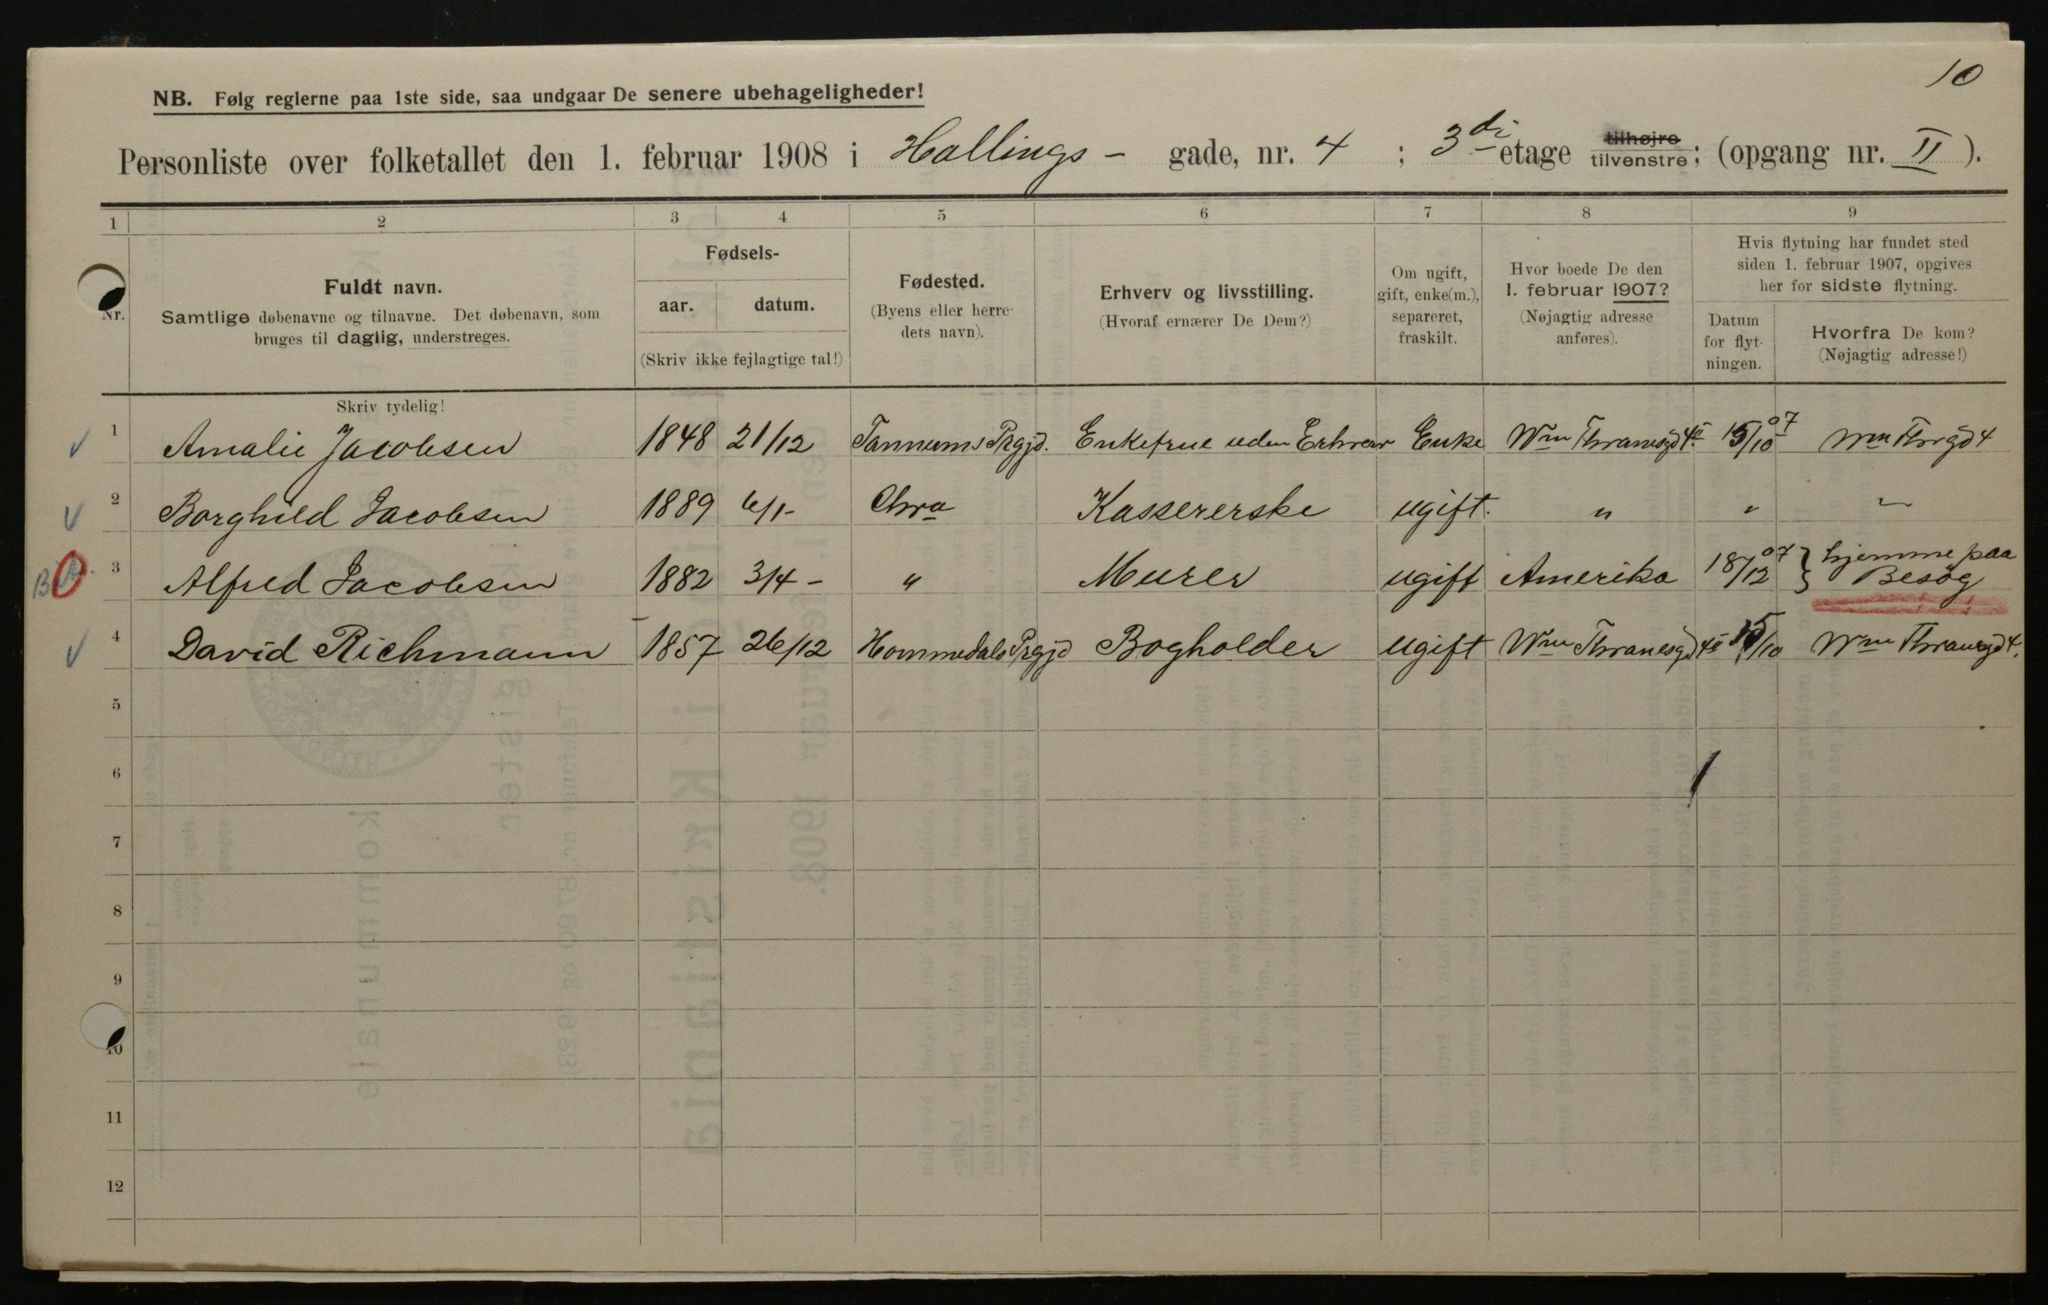 10
NB. Følg reglerne paa 1ste side, saa undgaar De senere ubehageligheder!
Personliste over folketallet den 1. februar 1908 i Hallings- gade, nr. 4 ; 3di etage tilhøjre tilvenstre; (opgang nr. II ).
1 2 3 4 5 6 7 8 9
Nr.
Fuldt navn.
Samtlige døbenavne og tilnavne. Det døbenavn, som
bruges til daglig, understreges.
Skriv tydelig!
Fødsels-
aar. datum.
(Skriv ikke fejlagtige tal!)
Fødested.
(Byens eller herre-
dets navn).
Erhverv og livsstilling.
(Hvoraf ernærer De Dem?)
Om ugift,
gift, enke(m.),
separeret,
fraskilt.
Hvor boede De den
1. februar 1907?
(Nøjagtig adresse
anføres).
Hvis flytning har fundet sted
siden 1. februar 1907, opgives
her for sidste flytning.
Datum
for flyt-
ningen.
Hvorfra De kom?
(Nøjagtig adresse!)
1 Amalie Jacobsen 1848 21/12 Tannums Prgjd. Enkefrue uden Erhverv Enke Wm Thranesgd 4 II 15/10 07 Wm Thrgd 4
2 Borghild Jacobsen 1889 6/1- Chra Kassererske ugift. " " "
3 Alfred Jacobsen 1882 3/4- " Murer ugift Amerika 18/12 07 } hjemme paa
Besøg
4 David Richmann 1857 26/12 Hommedals Prgjd Bogholder ugift Wm Thranesgd 4 II 15/10 Wm Thranesgd 4.
5
6
7
8
9
10
11
12